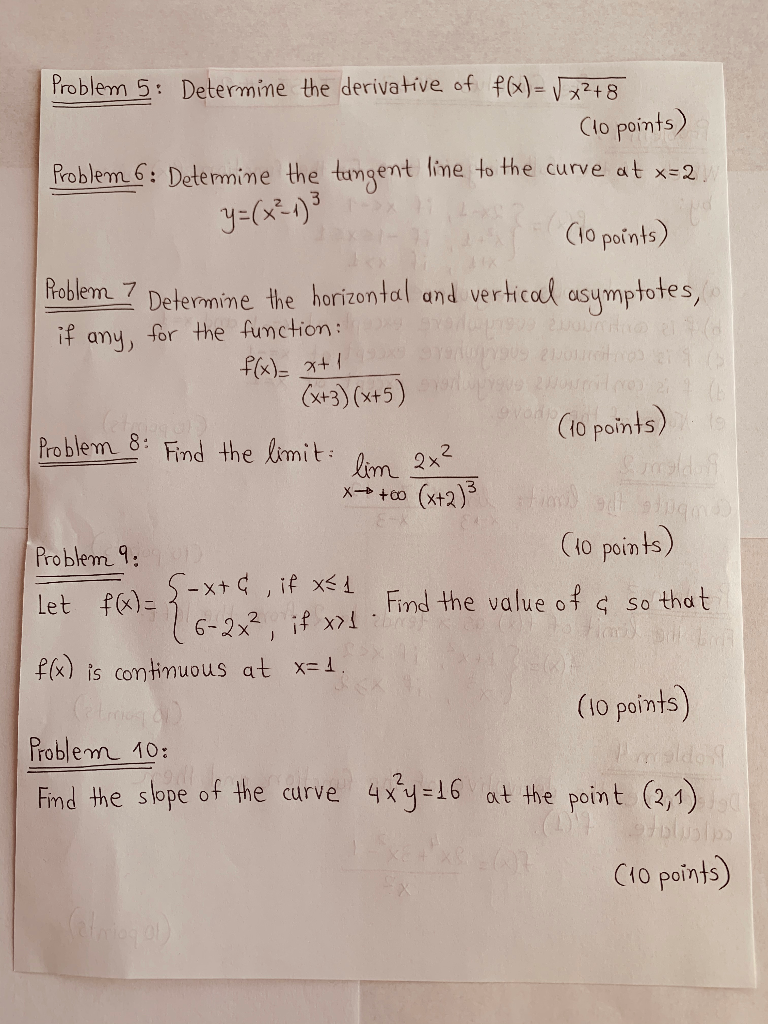 Problem 5: Determine the derivative of f(x)=√x²+8
(10 points)
Problem 6: Determine the tangent line to the curve at x=2.
y=(x²-1)³
(10 points)
Problem 7 Determine the horizontal and vertical asymptotes,
if any, for the function:
f(x)= x+1
(x+3)(x+5)
(10 points)
Problem 8: Find the limit: lim 2x²
x→+∞ (x+2)³
(10 points)
Problem 9:
Let f(x)= { -x+c, if x≤1
6-2x², if x>1 . Find the value of c so that
f(x) is continuous at x=1.
(10 points)
Problem 10:
Find the slope of the curve 4x²y=16 at the point (2,1)
(10 points)